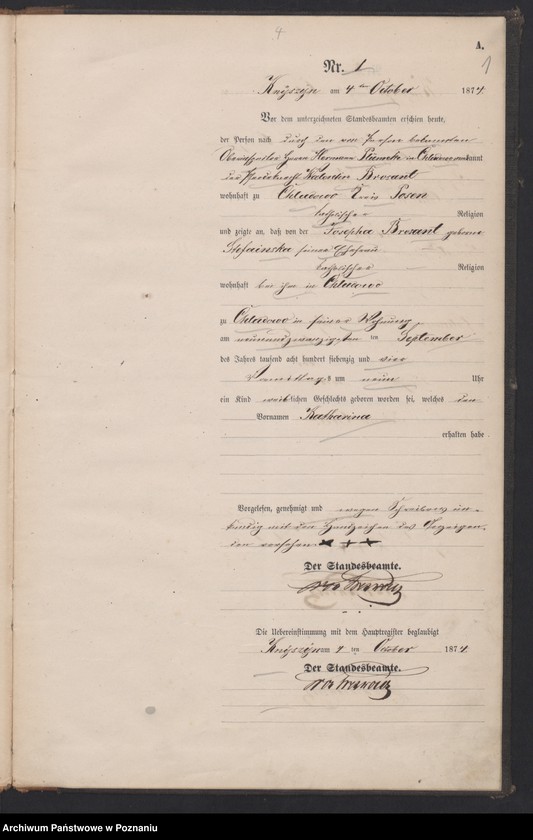 4
A.
1
Nr. 1
am 4ten October 1874.
Vor dem unterzeichneten Standesbeamten erschien heute,
der Person nach durch den von Person bekannten
Herrn Hermann in Chludowo anerkannt
Valentin Brosant
wohnhaft zu Chludowo Kreis Posen
katholischer Religion
und zeigte an, daß von der Josepha Brosant geborene
Stefainska seiner Ehefrau
katholischer Religion
wohnhaft bei ihm in Chludowo
zu Chludowo in seiner Wohnung
am neunundzwanzigsten ten September
des Jahres tausend acht hundert siebenzig und vier
um neun Uhr
ein Kind weiblichen Geschlechts geboren worden sei, welches den
Vornamen Katharina
erhalten habe.
Vorgelesen, genehmigt und wegen Schreibens un-
kundig mit den Handzeichen des Anzeigen-
den versehen x + x
Der Standesbeamte.
Die Uebereinstimmung mit dem Hauptregister beglaubigt
am 4 ten October 1874.
Der Standesbeamte.
Archiwum Państwowe w Poznaniu